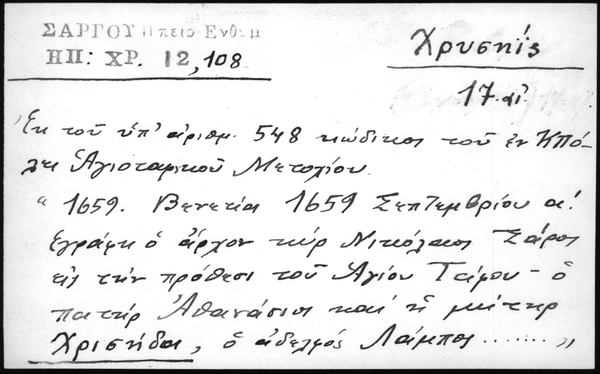 ΣΑΡΓΟΥ Ηπειρ Ενθυμ
ΗΠ: ΧΡ. 12,108
Χρυσηίς
17 αἰ
Ἐκ τοῦ ὑπ' ἀριθμ. 548 κώδικος τοῦ ἐν Κπό-
λει Ἁγιοταφικοῦ Μετοχίου.
" 1659. Βενετία 1659 Σεπτεμβρίου α!
ἐγράφη ὁ ἄρχον κύρ Νικόλαος Σάρος
εἰς τήν πρόθεσι τοῦ Ἁγίου Τάφου - ὁ
πατήρ Ἀθανάσιος καί ἡ μήτηρ
Χρισηίδα, ὁ ἀδελφός Λάμπος ........ "